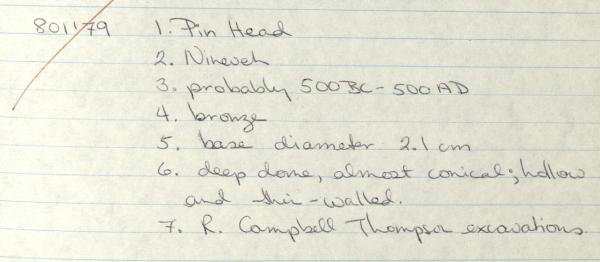 801179 1. Pin Head
2. Nineveh
3. probably 500 BC - 500 AD
4. bronze
5. base diameter 2.1 cm
6. deep dome, almost conical; hollow
and thin-walled.
7. R. Campbell Thompson excavations.